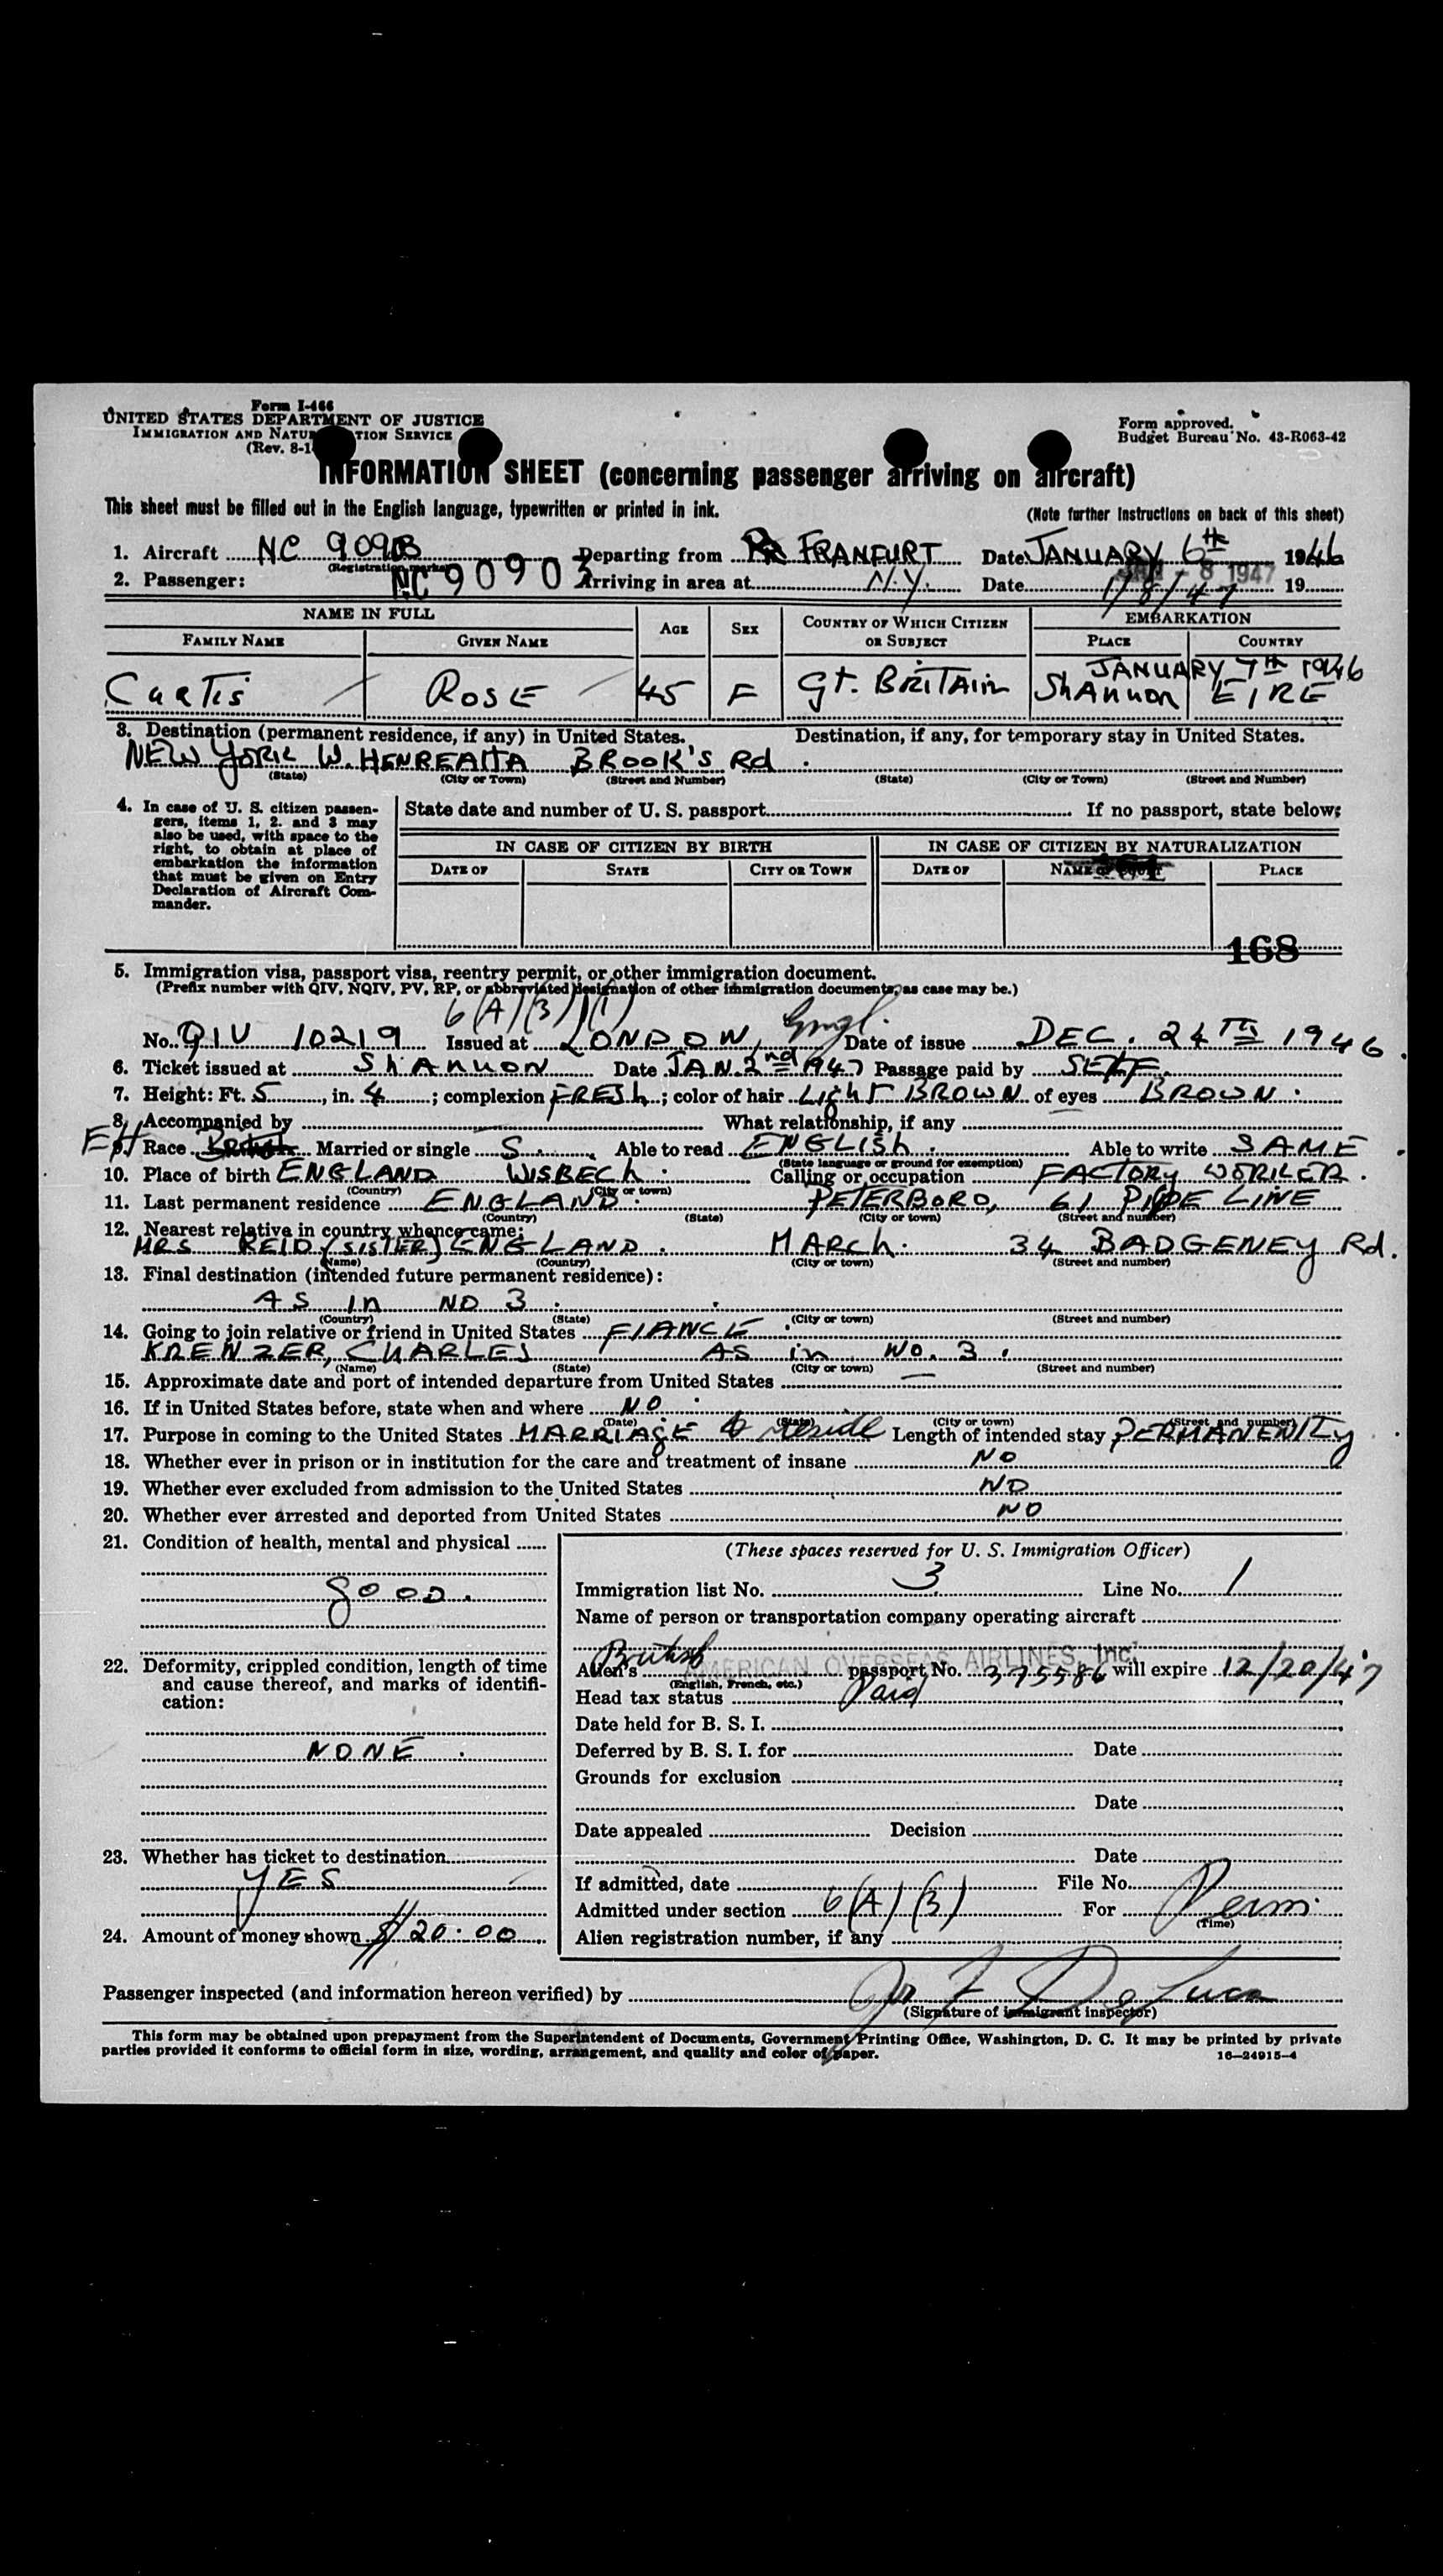 Form I-466
UNITED STATES DEPARTMENT OF JUSTICE
IMMIGRATION AND NATURALIZATION SERVICE
(Rev. 8-1
Form approved.
Budget Bureau No. 43-R063-42
INFORMATION SHEET (concerning passenger arriving on aircraft)
This sheet must be filled out in the English language, typewritten or printed in ink.
(Note further instructions on back of this sheet)
1. Aircraft NC 90903 Departing from FRANFURT Date JANUARY 6th 1946
(Registration marks)
2. Passenger: NC 90903 Arriving in area at N.Y. Date 1/8/47 JAN - 8 1947 19
NAME IN FULL AGE SEX COUNTRY OF WHICH CITIZEN OR SUBJECT EMBARKATION
FAMILY NAME GIVEN NAME PLACE COUNTRY
JANUARY 7th 1946
Curtis ROSE 45 F Gt. BRITAIN ShANNON EIRE
3. Destination (permanent residence, if any) in United States. Destination, if any, for temporary stay in United States.
NEW YORK W. HENREAITA BROOK'S Rd.
(State) (City or Town) (Street and Number) (State) (City or Town) (Street and Number)
4. In case of U. S. citizen passengers, items 1, 2. and 3 may also be used, with space to the right, to obtain at place of embarkation the information that must be given on Entry Declaration of Aircraft Commander.
State date and number of U. S. passport If no passport, state below:
IN CASE OF CITIZEN BY BIRTH IN CASE OF CITIZEN BY NATURALIZATION
DATE OF STATE CITY OR TOWN DATE OF NAME OF COURT PLACE
168
5. Immigration visa, passport visa, reentry permit, or other immigration document.
(Prefix number with QIV, NQIV, PV, RP, or abbreviated designation of other immigration documents, as case may be.)
6(A)(3)(1)
No. QIV 10219 Issued at LONDON, Engl. Date of issue DEC. 24TH 1946.
6. Ticket issued at ShANNON Date JAN. 2nd 1947 Passage paid by SELF.
7. Height: Ft. 5, in. 4; complexion FRESh; color of hair LIGhT BROWN of eyes BROWN.
8. Accompanied by What relationship, if any
9. Race British Married or single S. Able to read ENGLISh. Able to write SAME.
(State language or ground for exemption)
10. Place of birth ENGLAND WISBECH. Calling or occupation FACTORY WORKER.
(Country) (City or town)
11. Last permanent residence ENGLAND. PETERBORO, 61 PIPE LINE
(Country) (State) (City or town) (Street and number)
12. Nearest relative in country whence came:
MRS REID (SISTER) ENGLAND. MARCh. 34 BADGENEY Rd.
(Name) (Country) (City or town) (Street and number)
13. Final destination (intended future permanent residence):
AS IN NO 3.
(Country) (State) (City or town) (Street and number)
14. Going to join relative or friend in United States FIANCE.
KRENZER, CHARLES AS in NO. 3.
(Name) (State) (City or town) (Street and number)
15. Approximate date and port of intended departure from United States —
16. If in United States before, state when and where NO.
(Date) (State) (City or town) (Street and number)
17. Purpose in coming to the United States MARRIAGE & reside Length of intended stay PERMANENTLY.
18. Whether ever in prison or in institution for the care and treatment of insane NO
19. Whether ever excluded from admission to the United States NO
20. Whether ever arrested and deported from United States NO
21. Condition of health, mental and physical
GOOD.
22. Deformity, crippled condition, length of time and cause thereof, and marks of identification:
NONE.
23. Whether has ticket to destination
YES
24. Amount of money shown $20.00
(These spaces reserved for U. S. Immigration Officer)
Immigration list No. 3 Line No. 1
Name of person or transportation company operating aircraft
AMERICAN OVERSEAS AIRLINES, Inc.
Alien's British passport No. 375586 will expire 12/20/47
(English, French, etc.)
Head tax status Paid
Date held for B. S. I.
Deferred by B. S. I. for Date
Grounds for exclusion
Date
Date appealed Decision
Date
If admitted, date File No.
Admitted under section 6(A)(3) For Perm
(Time)
Alien registration number, if any
Passenger inspected (and information hereon verified) by F DeLuca
(Signature of immigrant inspector)
This form may be obtained upon prepayment from the Superintendent of Documents, Government Printing Office, Washington, D. C. It may be printed by private
parties provided it conforms to official form in size, wording, arrangement, and quality and color of paper.
16—24915-4